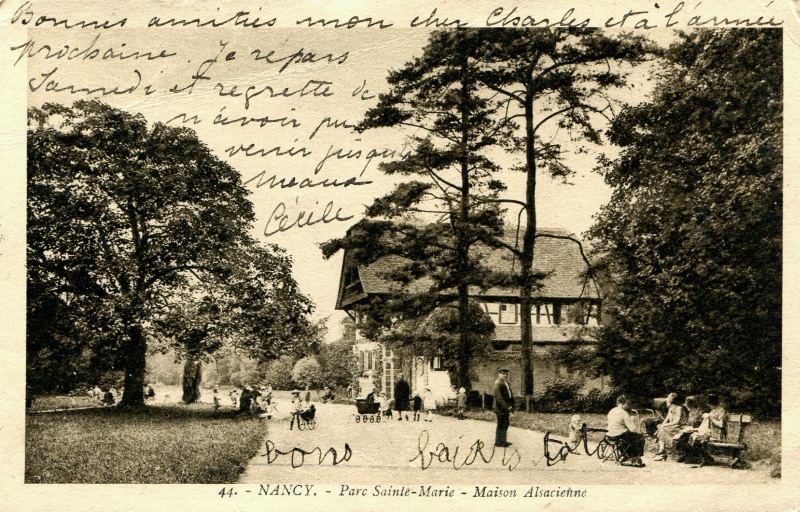 Bonnes amitiés mon cher Charles et à l'année
prochaine. Je repars
Samedi et regrette de
n'avoir pu
venir jusqu'à
Meaux
Cécile
bons baisers toto
44. - NANCY. - Parc Sainte-Marie - Maison Alsacienne